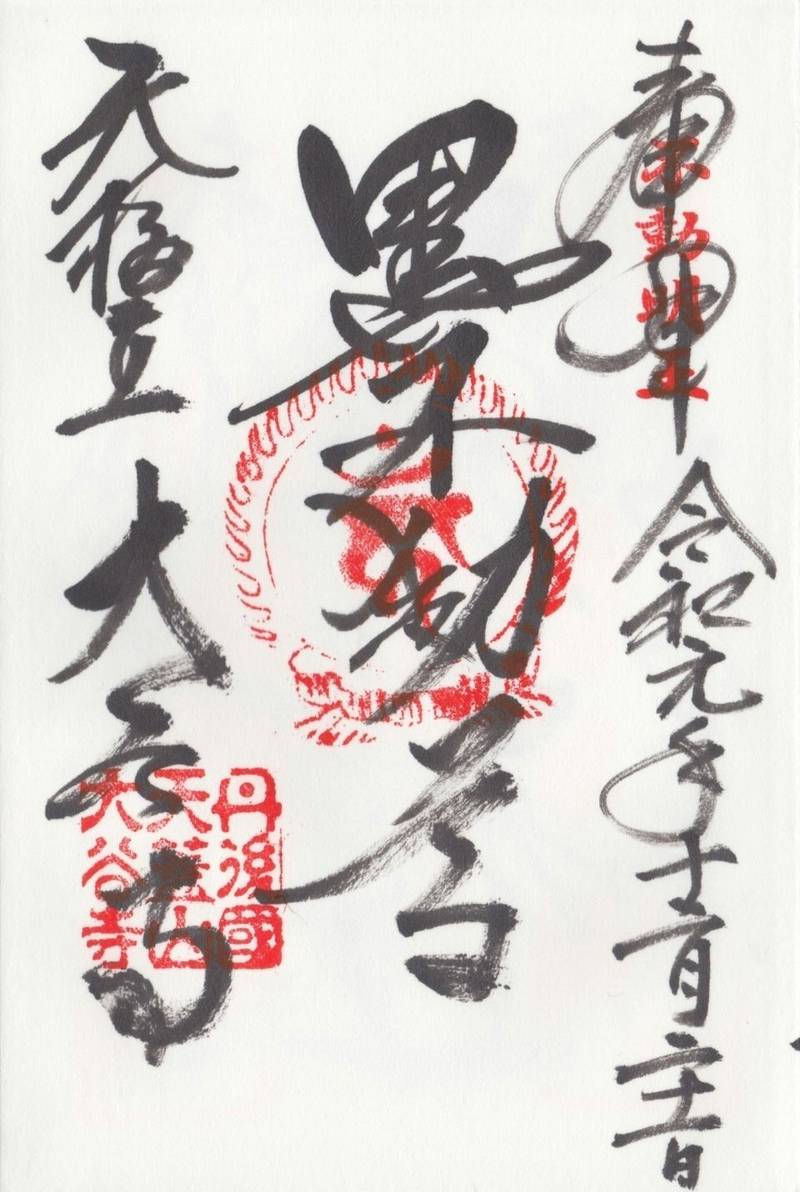 奉拝 令和元年十二月二十一日
不動明王
墨不動尊
天橋立 大谷寺
丹後國
天蓋山
大谷寺